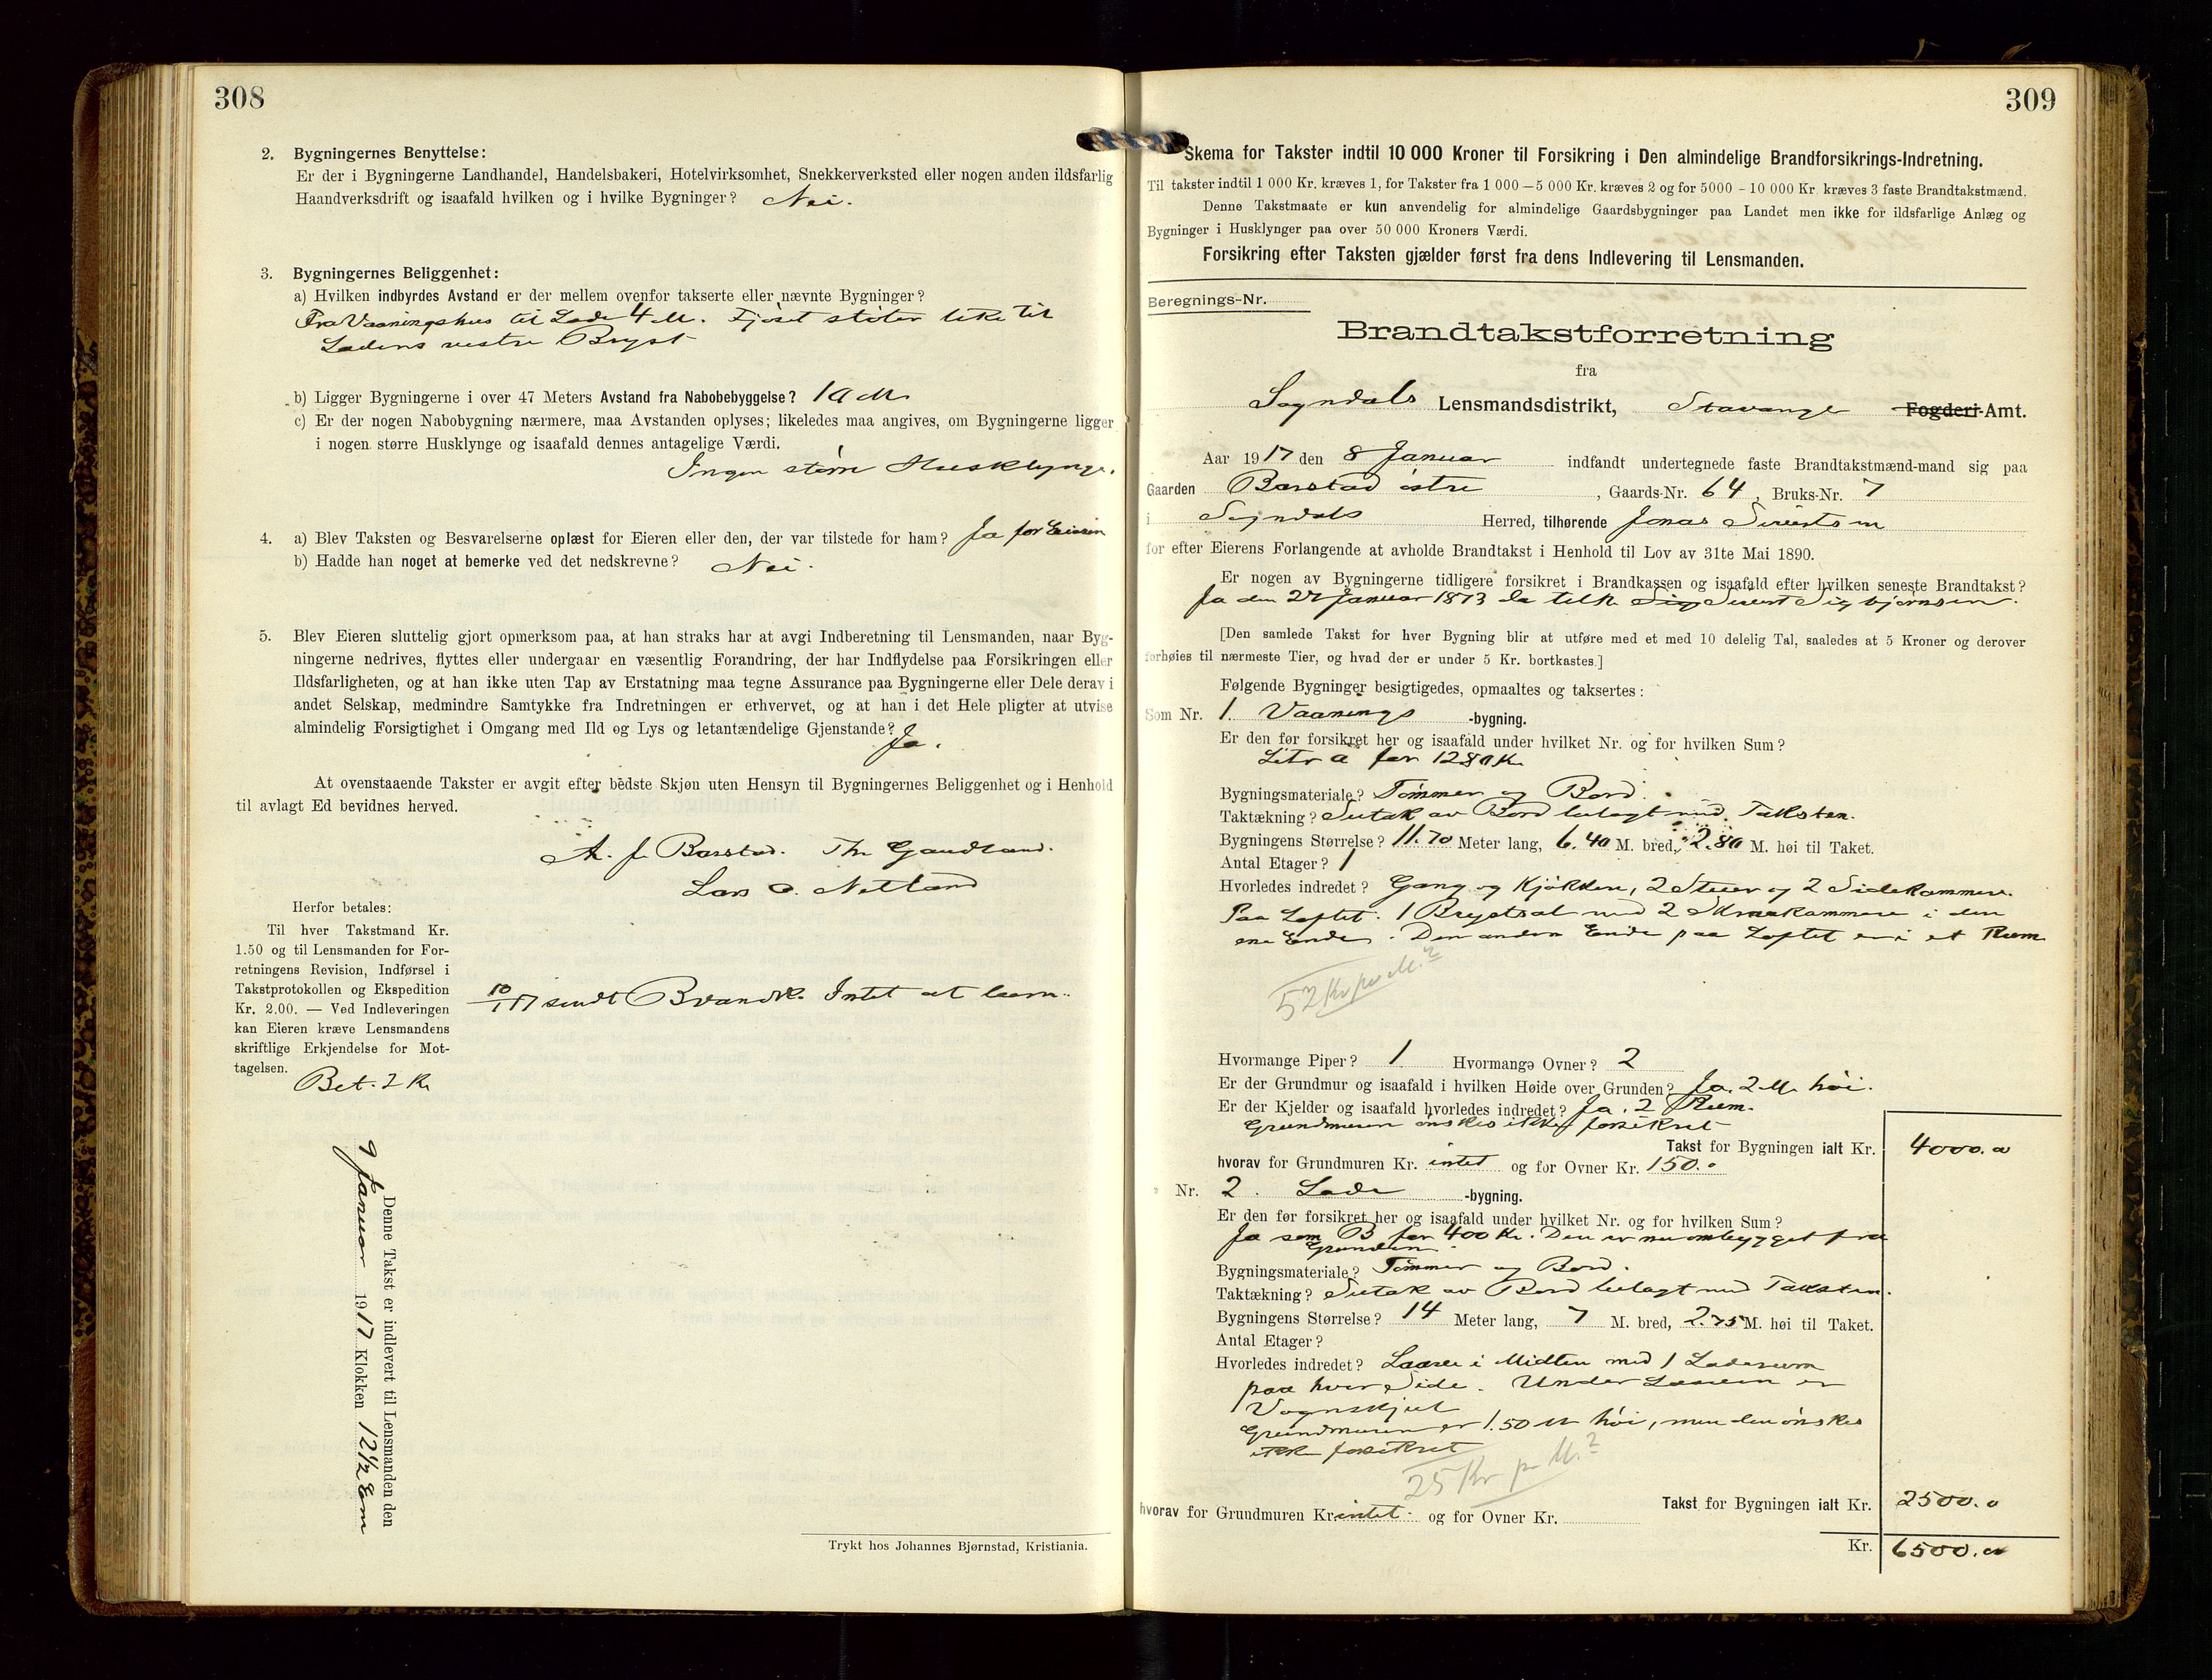 308
2. Bygningernes Benyttelse:
Er der i Bygningerne Landhandel, Handelsbakeri, Hotelvirksomhet, Snekkerverksted eller nogen anden ildsfarlig
Haandverksdrift og isaafald hvilken og i hvilke Bygninger? Nei.
3. Bygningernes Beliggenhet:
a) Hvilken indbyrdes Avstand er der mellem ovenfor takserte eller nævnte Bygninger?
Fra Vaaningshus til Lade 4 M. Fjøset støter like til
Ladens vestre Bryst
b) Ligger Bygningerne i over 47 Meters Avstand fra Nabobebyggelse? 10 M
c) Er der nogen Nabobygning nærmere, maa Avstanden oplyses; likeledes maa angives, om Bygningerne ligger
i nogen større Husklynge og isaafald dennes antagelige Værdi.
Ingen større Husklynge.
4. a) Blev Taksten og Besvarelserne oplæst for Eieren eller den, der var tilstede for ham? Ja for Eieren
b) Hadde han noget at bemerke ved det nedskrevne? Nei.
5. Blev Eieren sluttelig gjort opmerksom paa, at han straks har at avgi Indberetning til Lensmanden, naar Byg-
ningerne nedrives, flyttes eller undergaar en væsentlig Forandring, der har Indflydelse paa Forsikringen eller
Ildsfarligheten, og at han ikke uten Tap av Erstatning maa tegne Assurance paa Bygningerne eller Dele derav i
andet Selskap, medmindre Samtykke fra Indretningen er erhvervet, og at han i det Hele pligter at utvise
almindelig Forsigtighet i Omgang med Ild og Lys og letantændelige Gjenstande?
Ja.
At ovenstaaende Takster er avgit efter bedste Skjøn uten Hensyn til Bygningernes Beliggenhet og i Henhold
til avlagt Ed bevidnes herved.
A. J. Barstad. Th. Gaudland.
Lars O. Netland
Herfor betales:
Til hver Takstmand Kr.
1.50 og til Lensmanden for For-
retningens Revision, Indførsel i
Takstprotokollen og Ekspedition
Kr. 2.00. — Ved Indleveringen
kan Eieren kræve Lensmandens
skriftlige Erkjendelse for Mot-
tagelsen.
Bet. 2 Kr
10/1 17 sendt Brandk. Intet at bem.
Denne Takst er indlevert til Lensmanden den
9 Januar 1917 Klokken 12½ Em
Trykt hos Johannes Bjørnstad, Kristiania.
309
Skema for Takster indtil 10 000 Kroner til Forsikring i Den almindelige Brandforsikrings-Indretning.
Til takster indtil 1 000 Kr. kræves 1, for Takster fra 1 000 — 5 000 Kr. kræves 2 og for 5000 - 10 000 Kr. kræves 3 faste Brandtakstmænd.
Denne Takstmaate er kun anvendelig for almindelige Gaardsbygninger paa Landet men ikke for ildsfarlige Anlæg og
Bygninger i Husklynger paa over 50 000 Kroners Værdi.
Forsikring efter Taksten gjælder først fra dens Indlevering til Lensmanden.
Beregnings-Nr.
Brandtakstforretning
fra
Sogndals Lensmandsdistrikt, Stavanger Fogderi-Amt.
Aar 1917 den 8 Januar indfandt undertegnede faste Brandtakstmænd-mand sig paa
Gaarden Barstad østre, Gaards-Nr. 64, Bruks-Nr. 7
i Sogndals Herred, tilhørende Jonas Sivertsen
for efter Eierens Forlangende at avholde Brandtakst i Henhold til Lov av 31te Mai 1890.
Er nogen av Bygningerne tidligere forsikret i Brandkassen og isaafald efter hvilken seneste Brandtakst?
Ja den 27 Januar 1873 da tilh. Sig Sivert Sigbjørnsen.
[Den samlede Takst for hver Bygning blir at utføre med et med 10 delelig Tal, saaledes at 5 Kroner og derover
forhøies til nærmeste Tier, og hvad der er under 5 Kr. bortkastes.]
Følgende Bygninger besigtigedes, opmaaltes og taksertes:
Som Nr. 1. Vaanings -bygning.
Er den før forsikret her og isaafald under hvilket Nr. og for hvilken Sum?
Litr a for 1280 Kr
Bygningsmateriale? Tømmer og Bord.
Taktækning? Sutak av Bord belagt med Taksten.
Bygningens Størrelse? 11.70 Meter lang, 6.40 M. bred, 2.80 M. høi til Taket.
Antal Etager? 1
Hvorledes indredet? Gang og Kjøkken, 2 Stuer og 2 Sidekammere.
Paa Loftet: 1 Brystsal med 2 Skraakammere i den
ene Ende. Den anden Ende paa Loftet er i et Rum
52 Kr pr M.²
Hvormange Piper? 1 Hvormange Ovner? 2
Er der Grundmur og isaafald i hvilken Høide over Grunden? Ja. 2 M. høi.
Er der Kjelder og isaafald hvorledes indredet? Ja. 2 Rum.
Grundmuren ønskes ikke forsikret
Takst for Bygningen ialt Kr. 4000.00
hvorav for Grundmuren Kr. intet og for Ovner Kr. 150.
Nr. 2. Lade -bygning.
Er den før forsikret her og isaafald under hvilket Nr. og for hvilken Sum?
Ja som B for 400 Kr. Den er nu ombygget fra
Grunden.
Bygningsmateriale? Tømmer og Bord.
Taktækning? Sutak av Bord belagt med Taksten.
Bygningens Størrelse? 14 Meter lang, 7 M. bred, 2.75 M. høi til Taket.
Antal Etager?
Hvorledes indredet? Laave i Midten med 1 Laderum
paa hver Side. Under Laaven er
Vognskjul
Grundmuren er 1.50 M høi, men den ønskes
ikke forsikret
25 Kr pr M.²
Takst for Bygningen ialt Kr. 2500.0
hvorav for Grundmuren Kr. intet og for Ovner Kr.
Kr. 6500.00